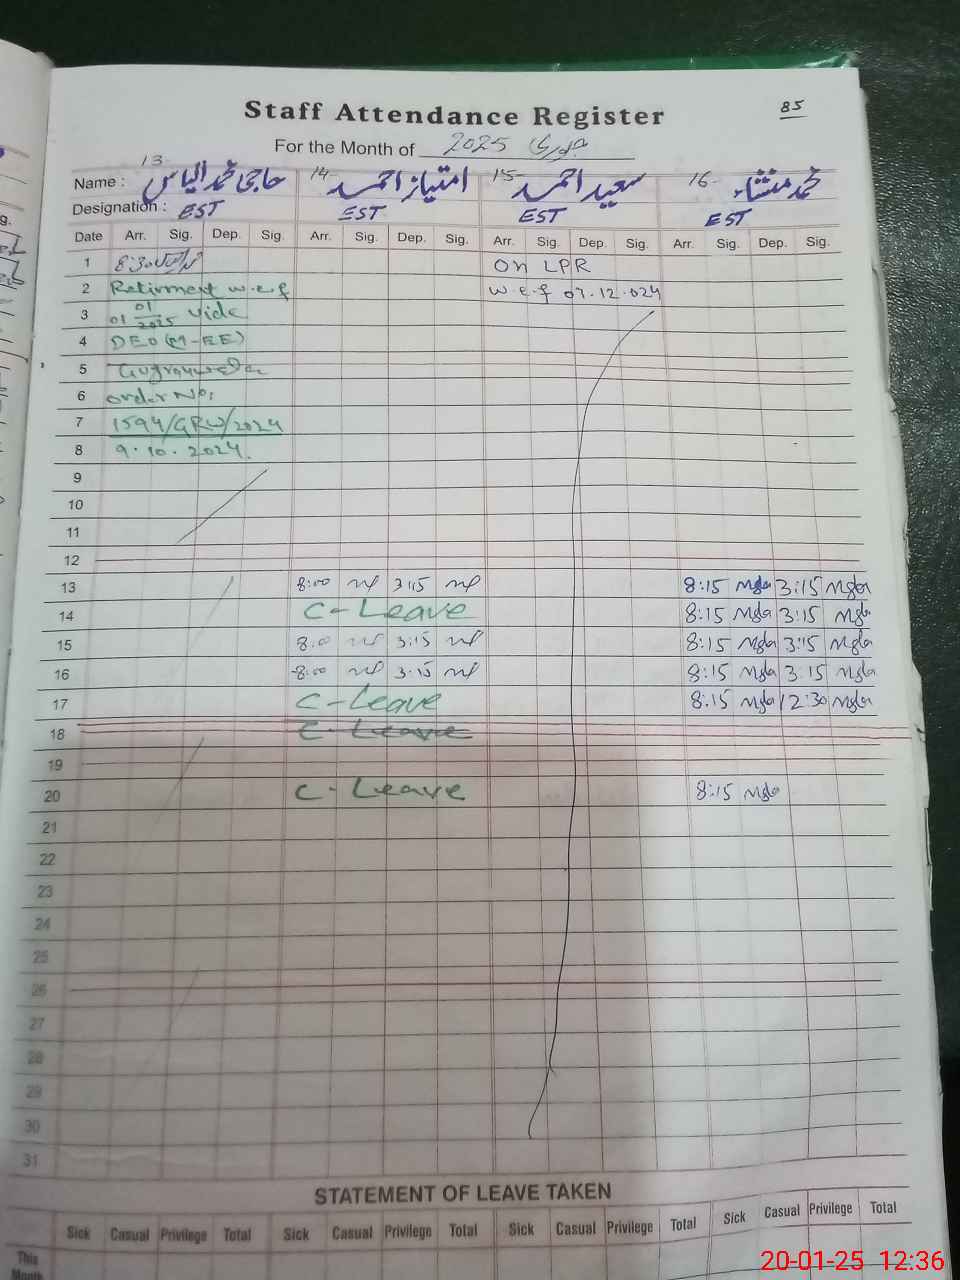 85
Staff Attendance Register
For the Month of جنوری 2025
13 14 15 16
Name : حاجی محمد الیاس امتیاز احمد سعید احمد محمد منشاء
Designation : EST EST EST EST
Date Arr. Sig. Dep. Sig. Arr. Sig. Dep. Sig. Arr. Sig. Dep. Sig. Arr. Sig. Dep. Sig.
1 8:30 On LPR
2 Retirment w.e.f w.e.f 07.12.024
3 01 01/2025 vide
4 DEO (M-EE)
5 Gujranwala
6 order No:
7 1594/GRW/2024
8 9.10.2024.
9
10
11
12
13 8:00 3:15 8:15 3:15
14 C-Leave 8:15 3:15
15 8:00 3:15 8:15 3:15
16 8:00 3:15 8:15 3:15
17 C-Leave 8:15 12:30
18 C-Leave
19
20 C-Leave 8:15
21
22
23
24
25
26
27
28
29
30
31
STATEMENT OF LEAVE TAKEN
Sick Casual Privilege Total Sick Casual Privilege Total Sick Casual Privilege Total Sick Casual Privilege Total
This
Month
20-01-25 12:36